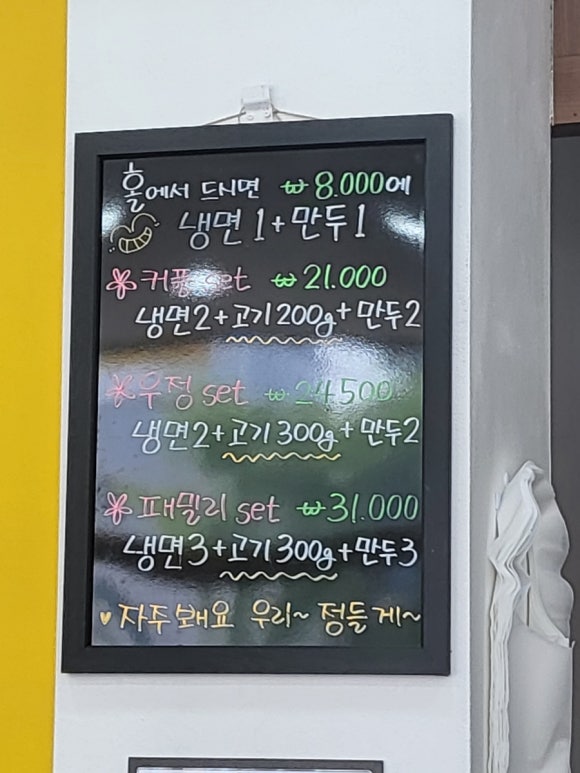 홀에서 드시면 ₩8.000에
냉면1+만두1
커플set ₩21.000
냉면2+고기200g+만두2
우정set ₩24.500
냉면2+고기300g+만두2
패밀리set ₩31.000
냉면3+고기300g+만두3
♥자주봬요 우리~ 정들게~